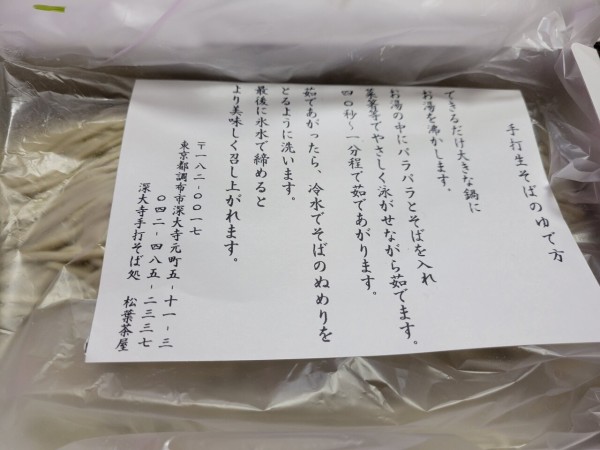 手打生そばのゆで方
できるだけ大きな鍋に
お湯を沸かします。
お湯の中にバラバラとそばを入れ
菜箸等でやさしく泳がせながら茹でます。
四〇秒～一分程で茹であがります。
茹であがったら、冷水でそばのぬめりを
とるように洗います。
最後に氷水で締めると
より美味しく召し上がれます。
〒一八二-〇〇一七
東京都調布市深大寺元町五-十一-三
〇四二-四八五-二三三七
深大寺手打そば処 松葉茶屋